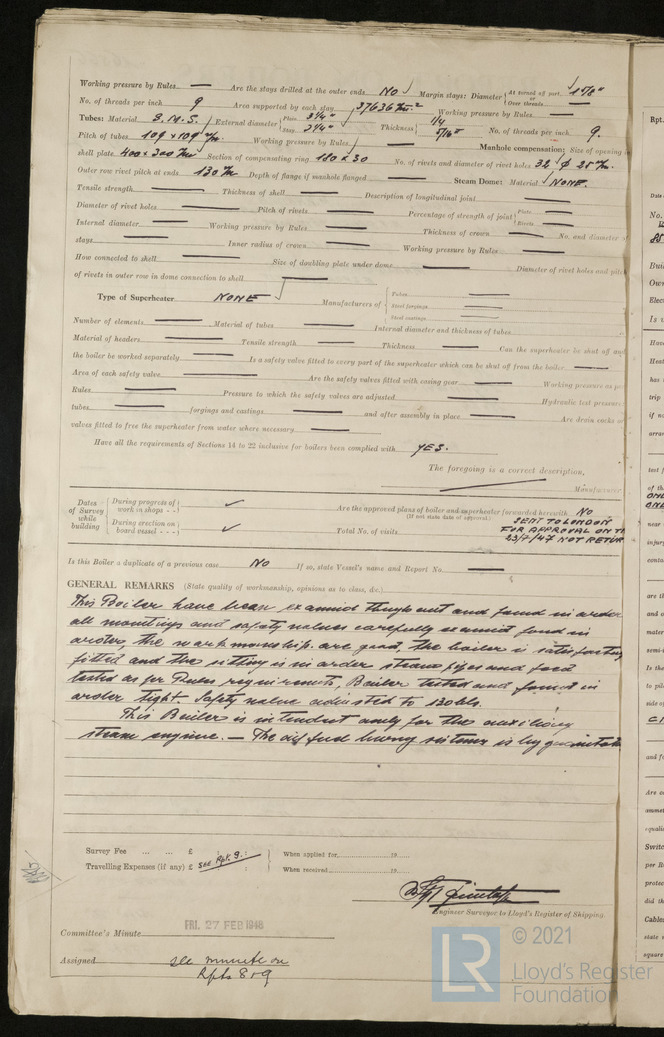 Working pressure by Rules — Are the stays drilled at the outer ends NO Margin stays: Diameter { At turned off part, 1 7/8" or Over threads —
No. of threads per inch 9 Area supported by each stay 37636 m² Working pressure by Rules —
Tubes: Material S.M.S. External diameter { Plain 3 1/4" Stay 3 1/4" Thickness { 1/4 5/16" No. of threads per inch 9.
Pitch of tubes 109 x 109 m/m. Working pressure by Rules — Manhole compensation: Size of opening in
shell plate 400 x 300 m/m Section of compensating ring 180 x 30 No. of rivets and diameter of rivet holes 32 ∅ 25 m/m.
Outer row rivet pitch at ends 130 m/m Depth of flange if manhole flanged — Steam Dome: Material NONE.
Tensile strength — Thickness of shell — Description of longitudinal joint —
Diameter of rivet holes — Pitch of rivets — Percentage of strength of joint { Plate — Rivets —
Internal diameter — Working pressure by Rules — Thickness of crown — No. and diameter of
stays — Inner radius of crown — Working pressure by Rules —
How connected to shell — Size of doubling plate under dome — Diameter of rivet holes and pitch
of rivets in outer row in dome connection to shell —
Type of Superheater NONE Manufacturers of { Tubes — Steel forgings — Steel castings —
Number of elements — Material of tubes — Internal diameter and thickness of tubes
Material of headers — Tensile strength — Thickness — Can the superheater be shut off and
the boiler be worked separately — Is a safety valve fitted to every part of the superheater which can be shut off from the boiler —
Area of each safety valve — Are the safety valves fitted with easing gear — Working pressure as per
Rules — Pressure to which the safety valves are adjusted — Hydraulic test pressure:
tubes — forgings and castings — and after assembly in place — Are drain cocks or
valves fitted to free the superheater from water where necessary —
Have all the requirements of Sections 14 to 22 inclusive for boilers been complied with YES.
The foregoing is a correct description,
Manufacturer
Dates of Survey while building { During progress of work in shops - - ✓ Are the approved plans of boiler and superheater forwarded herewith NO
(If not state date of approval.) SENT TO LONDON
{ During erection on board vessel - - - ✓ Total No. of visits FOR APPROVAL ON
23/7/47 NOT RETUR
Is this Boiler a duplicate of a previous case NO If so, state Vessel's name and Report No. —
GENERAL REMARKS (State quality of workmanship, opinions as to class, &c.)
This Boiler have been examind and found in order
all mountings and safety valves carefully examind found in
order, the workmanship are good, the boiler is satisfactory
fitted and the fitting is in order steam pipes and feed
tested as per Rules requirements, Boiler tested and found in
order tight. Safety valve adjusted to 120 lbs.
This Boiler is intendet only for the auxiliary
steam engine. — The oil fuel burning sistem is by
Survey Fee ... ... £ : : When applied for, 19
Travelling Expenses (if any) £ SEE Rpt. 9. When received, 19
Engineer Surveyor to Lloyd's Register of Shipping.
Committee's Minute FRI. 27 FEB 1948
Assigned see minute on
Rpts 8 & 9
© 2021
LR Lloyd's Register
Foundation